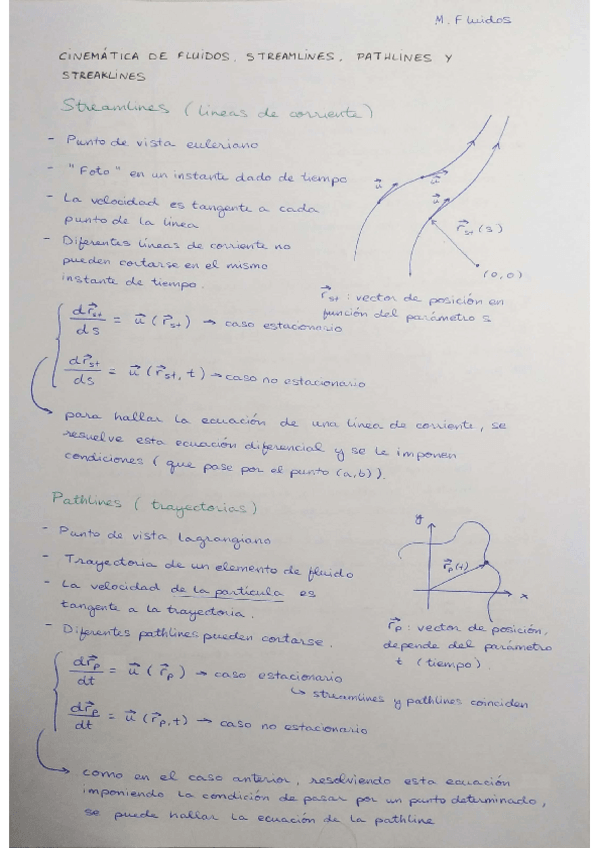 M. Fluidos
CINEMÁTICA DE FLUIDOS. STREAMLINES, PATHLINES Y
STREAKLINES
Streamlines (líneas de corriente)
- Punto de vista euleriano
- "Foto" en un instante dado de tiempo
- La velocidad es tangente a cada
punto de la línea
- Diferentes líneas de corriente no
pueden cortarse en el mismo
instante de tiempo.
u⃗
u⃗
u⃗
r⃗st (s)
(0,0)
r⃗st : vector de posición en
función del parámetro s
dr⃗st/ds = u⃗ (r⃗st) → caso estacionario
dr⃗st/ds = u⃗ (r⃗st, t) → caso no estacionario
para hallar la ecuación de una línea de corriente, se
resuelve esta ecuación diferencial y se le imponen
condiciones (que pase por el punto (a,b)).
Pathlines (trayectorias)
- Punto de vista Lagrangiano
- Trayectoria de un elemento de fluido
- La velocidad de la partícula es
tangente a la trayectoria.
- Diferentes pathlines pueden cortarse.
y
r⃗p(t)
x
r⃗p : vector de posición,
depende del parámetro
t (tiempo).
dr⃗p/dt = u⃗ (r⃗p) → caso estacionario
↳ streamlines y pathlines coinciden
dr⃗p/dt = u⃗ (r⃗p,t) → caso no estacionario
como en el caso anterior, resolviendo esta ecuación
imponiendo la condición de pasar por un punto determinado,
se puede hallar la ecuación de la pathline